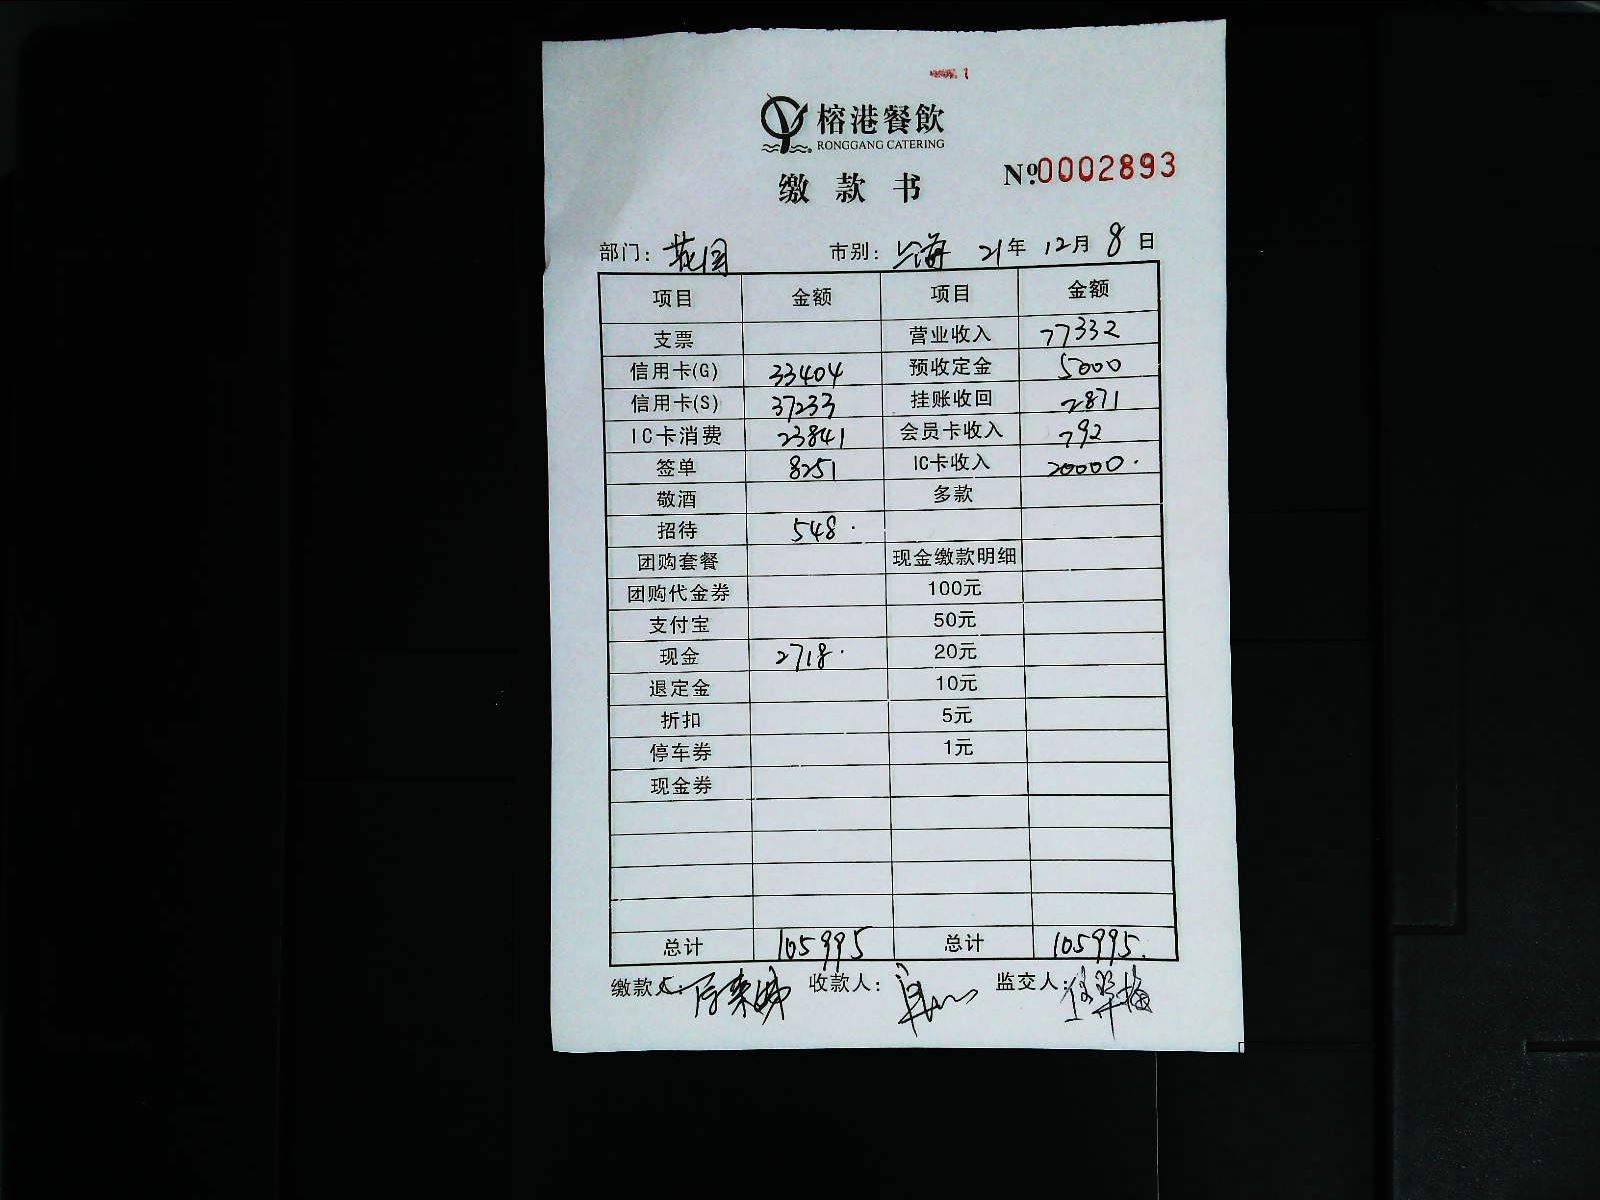 榕港餐飲
RONGGANG CATERING
缴款书 Nº0002893
部门: 花园 市别: 上海 21年 12月 8日
项目 金额 项目 金额
支票 营业收入 77332
信用卡(G) 33404 预收定金 5000
信用卡(S) 37233 挂账收回 2871
IC卡消费 23841 会员卡收入 792
签单 8251 IC卡收入 20000.
敬酒 多款
招待 548.
团购套餐 现金缴款明细
团购代金券 100元
支付宝 50元
现金 2718. 20元
退定金 10元
折扣 5元
停车券 1元
现金券
总计 105995 总计 105995.
缴款人: 收款人: 监交人: